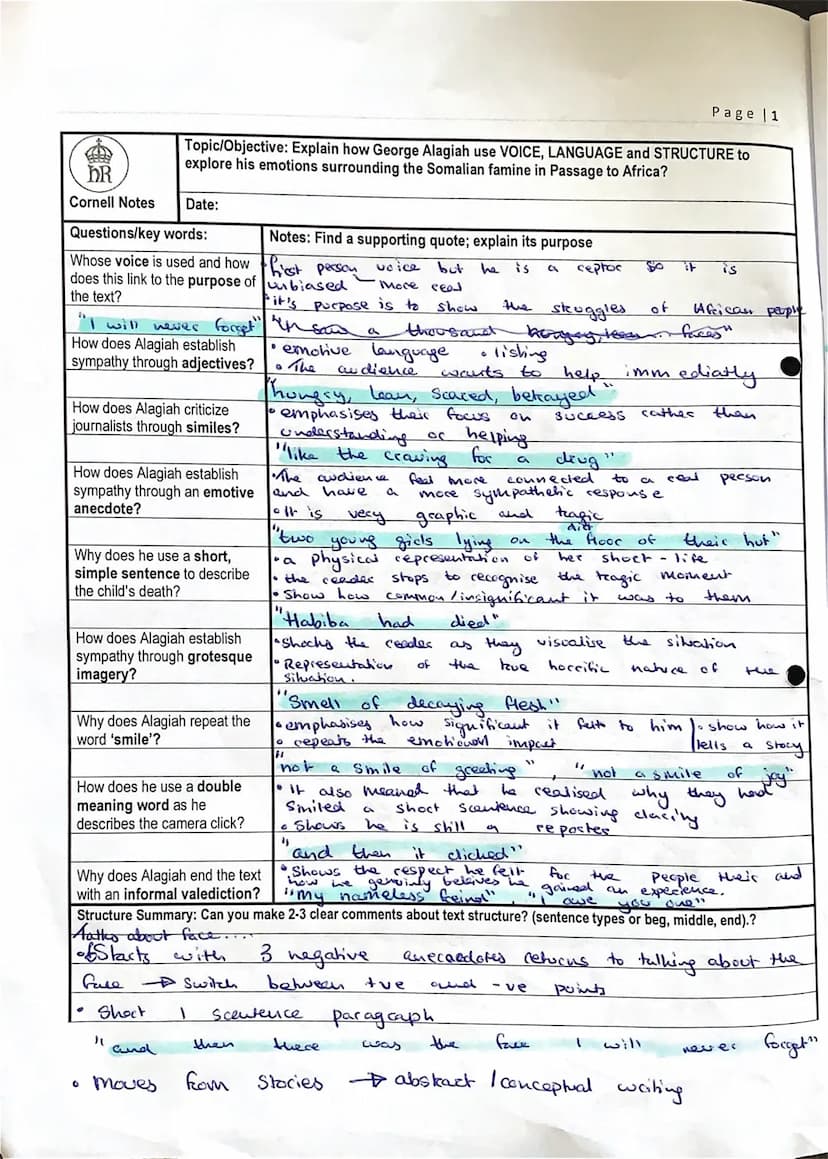 Page | 1
hR
Cornell Notes
Topic/Objective: Explain how George Alagiah use VOICE, LANGUAGE and STRUCTURE to
explore his emotions surrounding the Somalian famine in Passage to Africa?
Date:
Questions/key words:
Notes: Find a supporting quote; explain its purpose
Whose voice is used and how
does this link to the purpose of
the text?
"I will never forget"
• first person voice but he is a reptor so it is
unbiased more real
• it's purpose is to show the struggles of African people
"In saw a thousand hungry, lean faces"
How does Alagiah establish
sympathy through adjectives?
• emotive language • listing
• The audience wants to help immediatly
"hungry, lean, scared, betrayed"
How does Alagiah criticize
journalists through similes?
• emphasises their focus on success rather than
understanding or helping
"like the craving for a drug"
How does Alagiah establish
sympathy through an emotive
anecdote?
• The audience feel more connected to a real person
and have a more sympathetic response
• It is very graphic and tragic
dirt
"two young girls lying on the floor of their hut"
Why does he use a short,
simple sentence to describe
the child's death?
• a physical representation of her short-life
• the reader stops to recognise the tragic moment
• Show how common/insignificant it was to them
"Habiba had died"
How does Alagiah establish
sympathy through grotesque
imagery?
• Shocks the reader as they visualise the situation
• Representation of the true horrific nature of the
situation.
"Smell of decaying flesh"
Why does Alagiah repeat the
word 'smile'?
• emphasises how significant it felt to him
• repeats the emotional impact
• show how it
tells a story
"not a smile of greeting", "not a smile of joy"
How does he use a double
meaning word as he
describes the camera click?
• It also meaned that he realised why they had
smiled a short scentence showing claring
• Shows he is still a reporter
"and then it clicked"
Why does Alagiah end the text
with an informal valediction?
• Shows the respect he felt for the people their and
how he genuinly belives he gained an experience.
"my nameless freind", "I owe you one"
Structure Summary: Can you make 2-3 clear comments about text structure? (sentence types or beg, middle, end).?
Talks about face....
• Starts with 3 negative anecadotes returns to talking about the
face → Switch between +ve and -ve points
• Short 1 scentence paragraph
"and then there was the face I will never forget"
• Moves from stories → abstract/conceptual writing